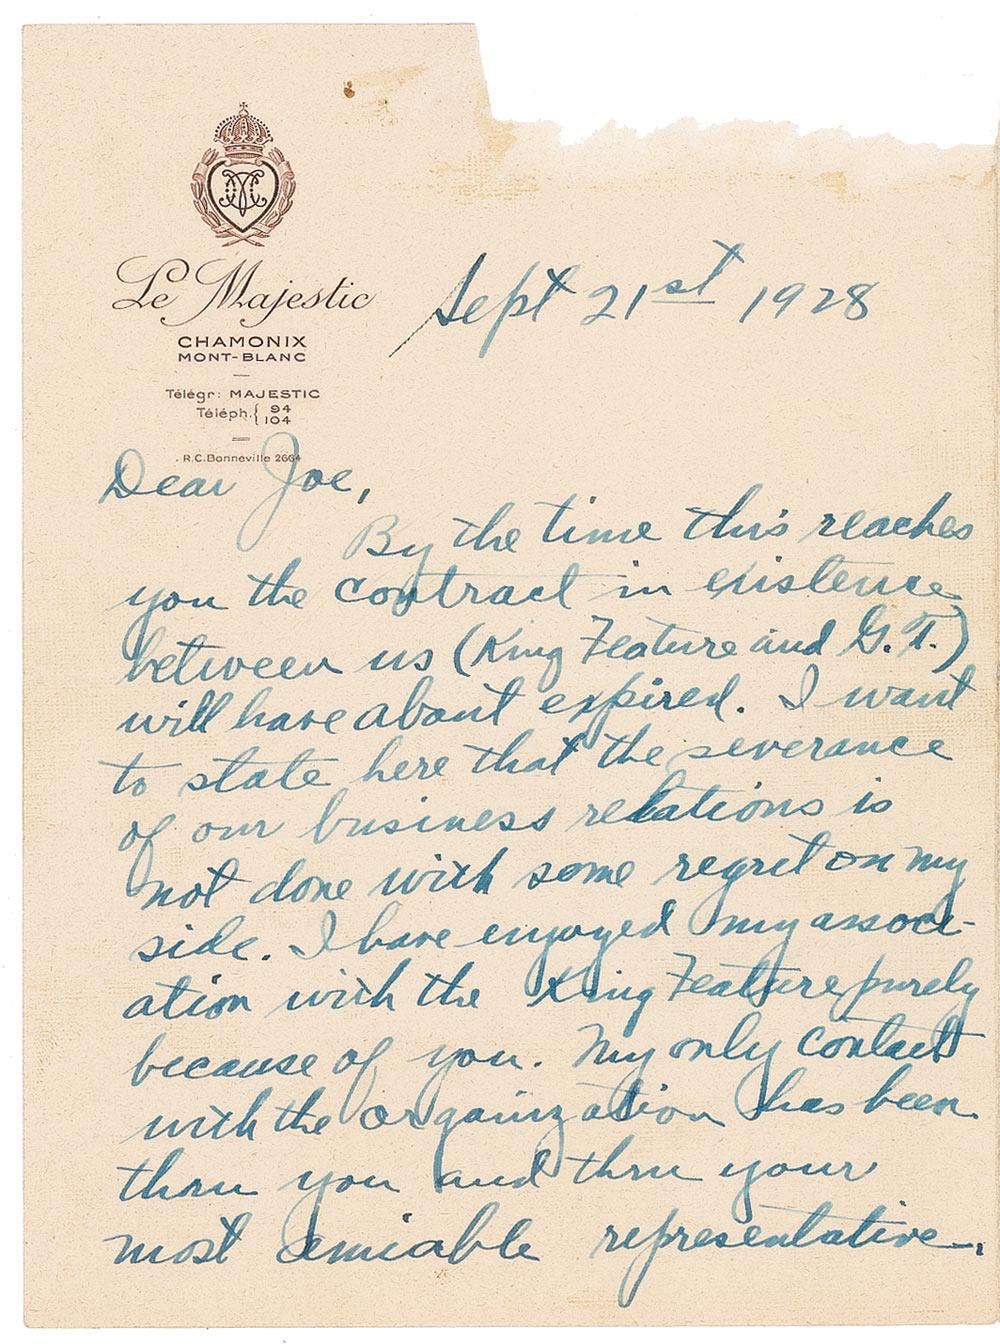 Le Majestic
CHAMONIX
MONT-BLANC
Télégr: MAJESTIC
Téléph. { 94
104
R.C. Bonneville 2664
Sept 21st 1928
Dear Joe,
By the time this reaches
you the contract in existence
between us (King Feature and G.T.)
will have about expired. I want
to state here that the severance
of our business relations is
not done with some regret on my
side. I have enjoyed my associ-
ation with the King Feature purely
because of you. My only contact
with the organization has been
thru you and thru your
most amiable representative.